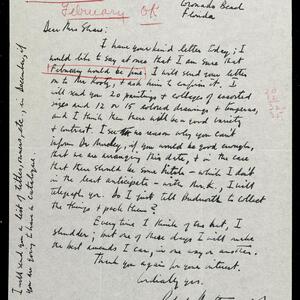 February OK
Ormond Beach
Florida
Dear Mrs Shaw:
I have your kind letter today; I
would like to say at once that I am sure that
February would be fine. I will send your letter
on to the Kootz, & ask him to confirm it. I
will send you 20 paintings & collages of assorted
sizes and 12 or 15 colored drawings & temperas,
and I think then there will be good variety
and contrast. I see no reason why you can't
inform Dr. Morley, if you would be good enough,
that we are arranging this date, & in the case
that there should be some hitch – which I don't
in the least anticipate – with Kootz, I will
telegraph you. Do I just tell Budworth to collect
the things & pack them?
Every time I think of last but, I
shudder; but one of these days I will make
the best amends I can, in one way or another.
Thank you again for your interest.
Cordially yrs.
I will send you a list of titles, sizes, etc., in December, if
you are going to have a catalogue.
20
12
32
35